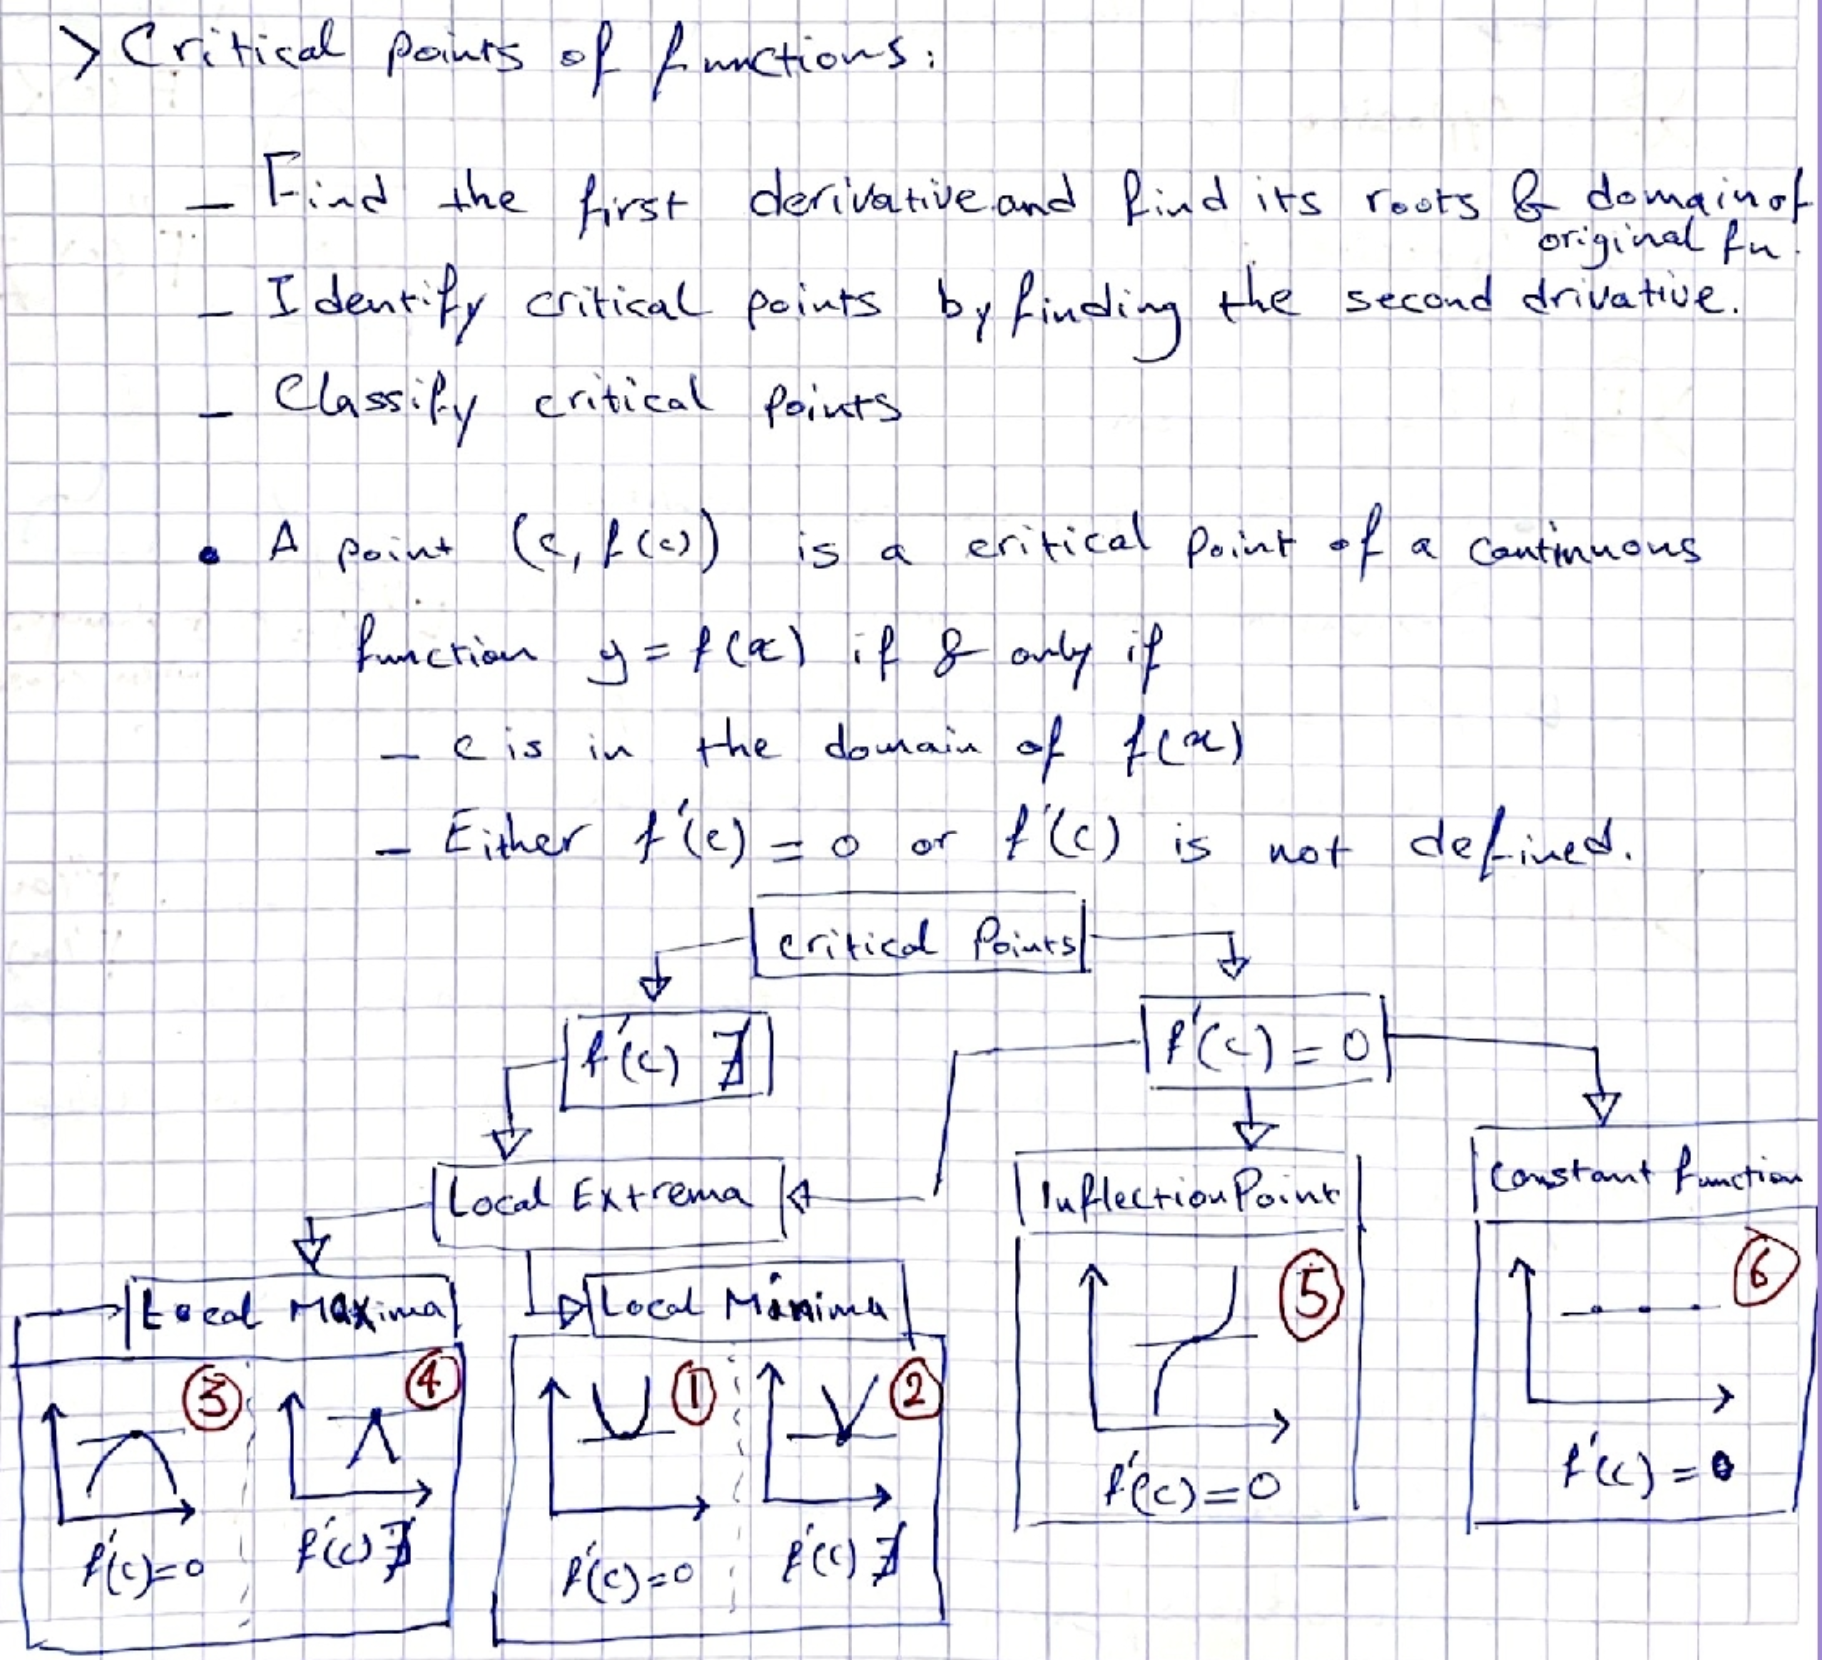 > Critical points of functions:
- Find the first derivative and find its roots & domain of
original fn.
- Identify critical points by finding the second drivative.
- Classify critical points
• A point (c, f(c)) is a critical point of a continuous
function y = f(x) if & only if
- c is in the domain of f(x)
- Either f'(c) = 0 or f'(c) is not defined.
Critical Points
f'(c) ∄
f'(c) = 0
Local Extrema
Inflection Point
Constant function
Local Maxima
Local Minima
③
④
①
②
⑤
⑥
f'(c)=0
f'(c) ∄
f'(c)=0
f'(c) ∄
f'(c)=0
f'(c)=0